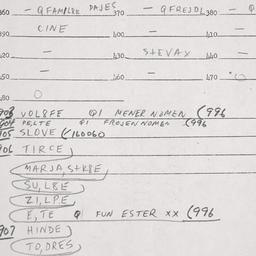 360 — QFAMIL8E DAJES 370 — QFREJDL 380 — Q
CINE 400 — 410 —
420 — 430 STEVAX 440 —
450 — 460 — 470
480 O
903 VOL8FE QI MENER NOMEN (996
904 PELTE QI FROJEN NOMEN (996
905 SLOVE (160060
906 TIRCE
MARJA, ST8E
SU, L8E
ZI, L, PE
E, TE Q FUN ESTER XX (996
907 HINDE
TO, DRES